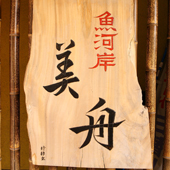 魚河岸
美舟